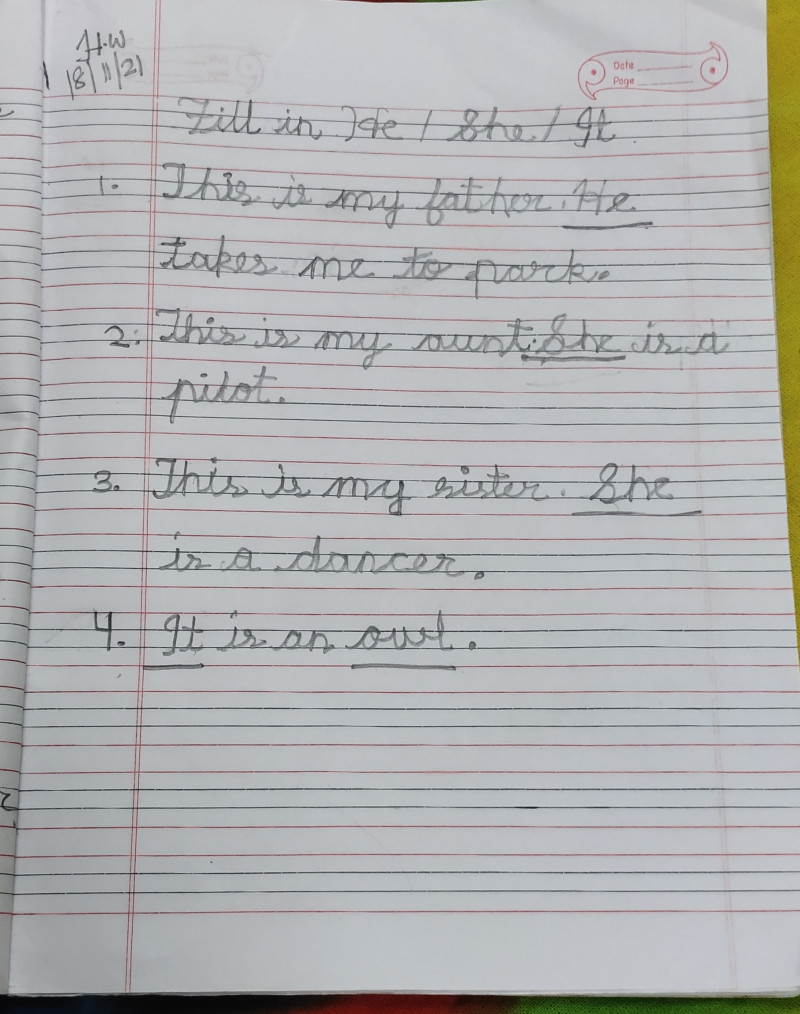 H.W
18/11/21
Date
Page
Fill in He / She / It
1. This is my father. He
takes me to park.
2. This is my aunt. She is a
pilot.
3. This is my sister. She
is a dancer.
4. It is an owl.